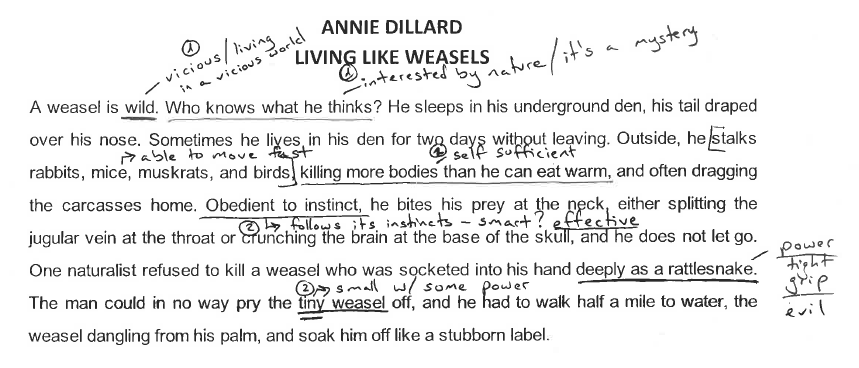 ANNIE DILLARD
① vicious/living
in a vicious world
LIVING LIKE WEASELS
① interested by nature/it's a mystery
A weasel is wild. Who knows what he thinks? He sleeps in his underground den, his tail draped
over his nose. Sometimes he lives in his den for two days without leaving. Outside, he stalks
→ able to move fast
② self sufficient
rabbits, mice, muskrats, and birds, killing more bodies than he can eat warm, and often dragging
the carcasses home. Obedient to instinct, he bites his prey at the neck, either splitting the
② ↳ follows its instincts - smart? effective
jugular vein at the throat or crunching the brain at the base of the skull, and he does not let go.
One naturalist refused to kill a weasel who was socketed into his hand deeply as a rattlesnake.
power
tight
grip
evil
② → small w/ some power
The man could in no way pry the tiny weasel off, and he had to walk half a mile to water, the
weasel dangling from his palm, and soak him off like a stubborn label.